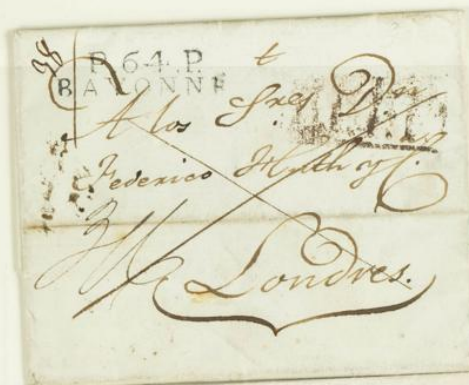 38
P.64.P.
BAYONNE
A los Sres Dn
Federico Huth y C.
Londres.